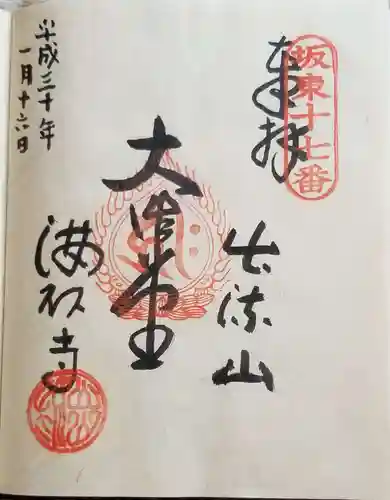 奉拝
坂東十七番
出流山
大悲殿
満願寺
平成三十年
一月十六日